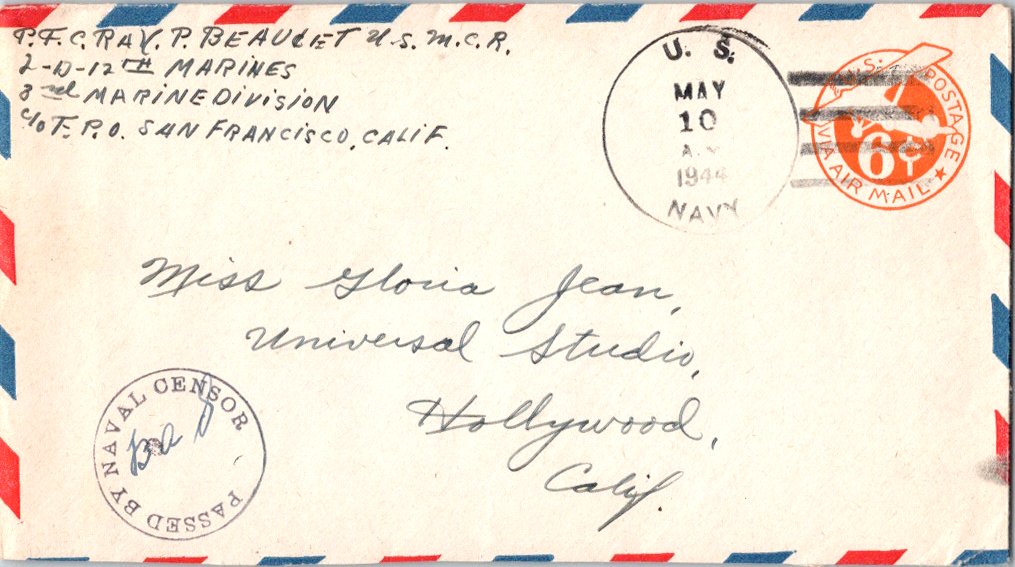 P.F.C. RAY. P. BEAUCET U.S.M.C.R.
2-D-12TH MARINES
3rd MARINE DIVISION
C/O F.P.O. SAN FRANCISCO, CALIF.
U. S.
MAY
10
A.M
1944
NAVY
U.S. POSTAGE
6¢
VIA AIR MAIL
Miss Gloria Jean,
Universal Studio,
Hollywood,
Calif.
PASSED BY NAVAL CENSOR